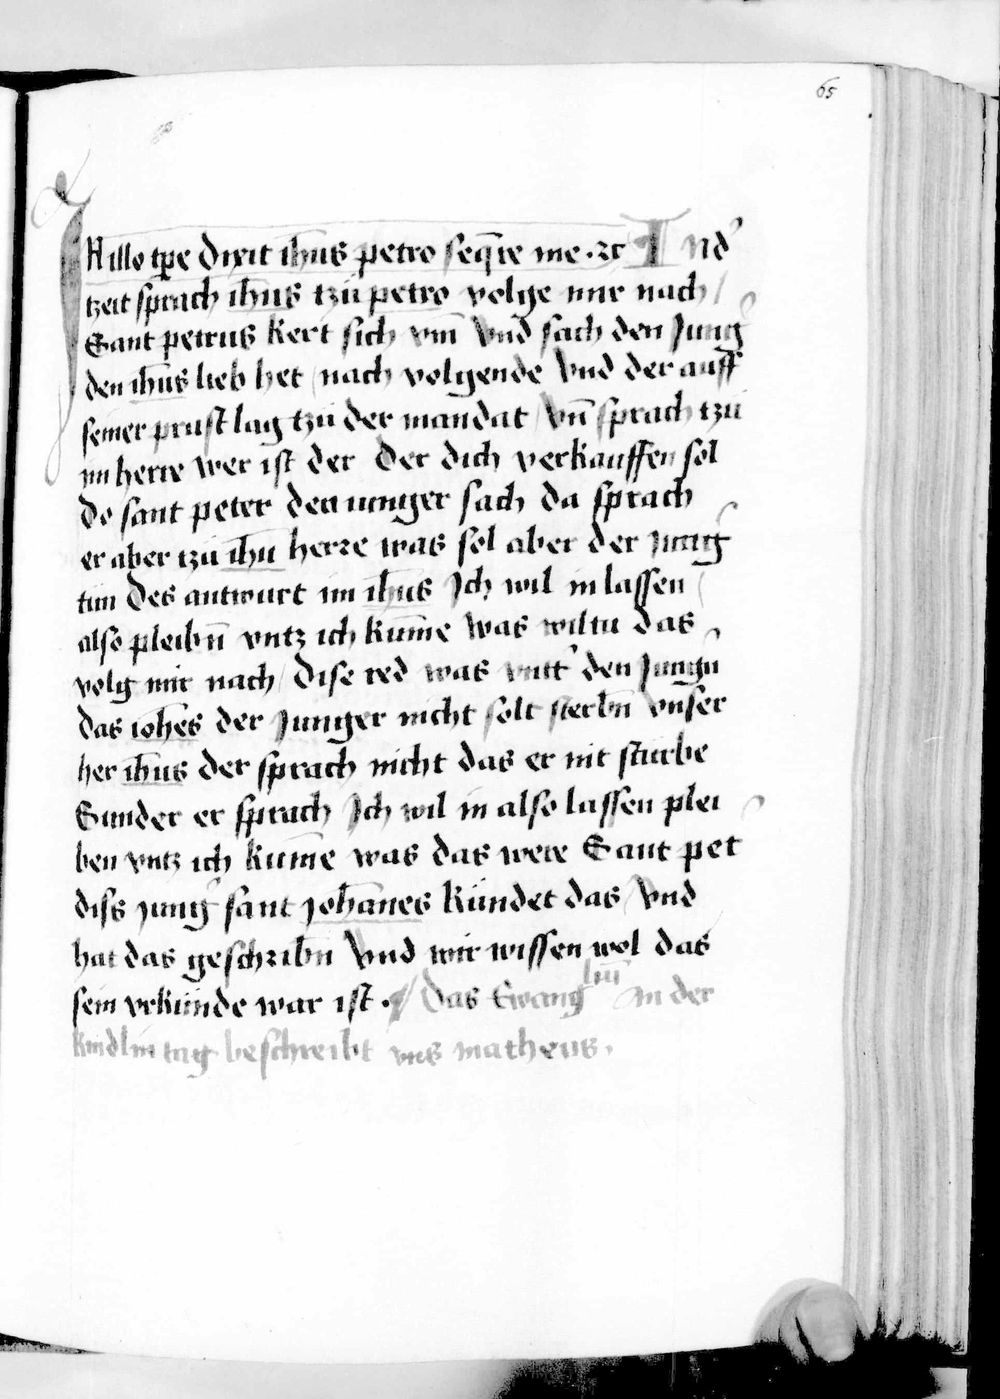 65
IN illo tp̄e dixit ih̄us petro seq̄re me ·⁊c I Nd'
tzeit sprach ih̄us tzu petro volge mir nach /
Sant petrus kert sich vm̄ Vnd sach den Jung'
den ih̄us lieb het / nach volgende Vnd der auff
seiner prust lag tzu der mandat / Vn̄ sprach tzu
im herre wer ist der Der dich verkauffen sol
do sant peter den iunger sach da sprach
er aber tzu ih̄u herre was sol aber der Jung'
tun Des antwurt im ih̄us Jch wil in lassen /
also pleibn̄ vntz ich kum̄e Was wiltu das
volg mir nach / Dise red was vntt' den Jungn̄
das ioh̄es der Junger nicht solt sterbn̄ vnser
her ih̄us der sprach nicht das er nit sturbe
Sunder er sprach Jch wil in also lassen plei
ben vntz ich kum̄e was das were Sant pet'
diss Jung' sant Joh̄anes kündet das / Vnd
hat das geschribn̄ Vnd wir wissen wol das
sein vrkünde war ist · Das Ewangliū An der
kindlin tag beschreibt vns matheus.